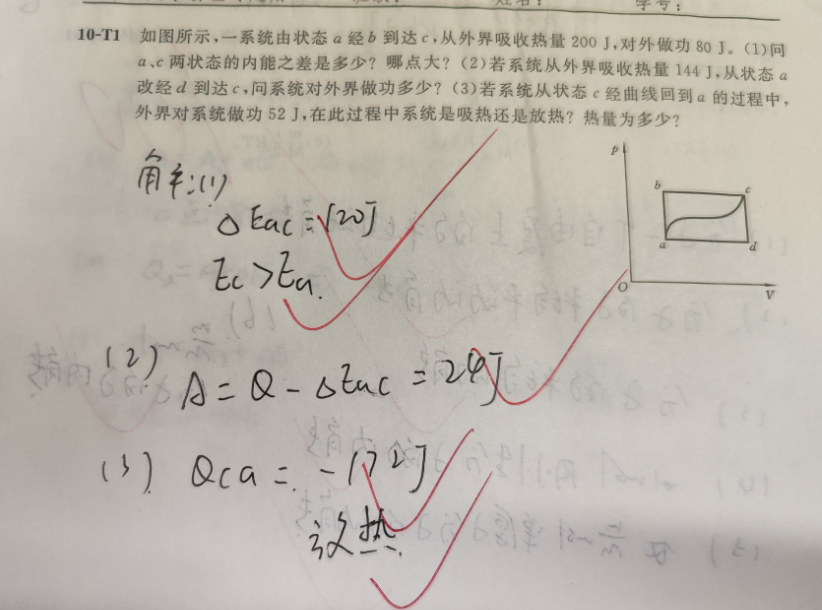 学号：
10-T1 如图所示,一系统由状态 a 经 b 到达 c,从外界吸收热量 200 J,对外做功 80 J。(1)问
a、c 两状态的内能之差是多少？哪点大？(2)若系统从外界吸收热量 144 J,从状态 a
改经 d 到达 c,问系统对外界做功多少？(3)若系统从状态 c 经曲线回到 a 的过程中,
外界对系统做功 52 J,在此过程中系统是吸热还是放热？热量为多少？
解:(1)
ΔEac=120J
Ec>Ea.
(2)
A=Q-ΔEac=24J
(3) Qca=-172J
放热.
p
b
c
a
d
O
V